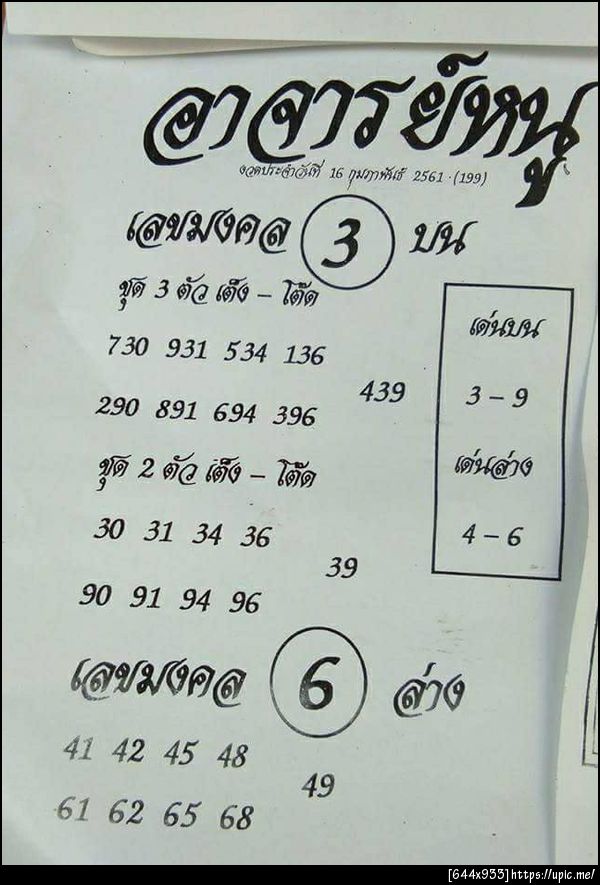 อาจารย์หนู
งวดประจำวันที่ 16 กุมภาพันธ์ 2561 (199)
เลขมงคล 3 บน
ชุด 3 ตัว เต็ง - โต๊ด
730 931 534 136
439
290 891 694 396
ชุด 2 ตัว เต็ง - โต๊ด
30 31 34 36
39
90 91 94 96
เด่นบน
3 - 9
เด่นล่าง
4 - 6
เลขมงคล 6 ล่าง
41 42 45 48
49
61 62 65 68
[644x933]https://upic.me/